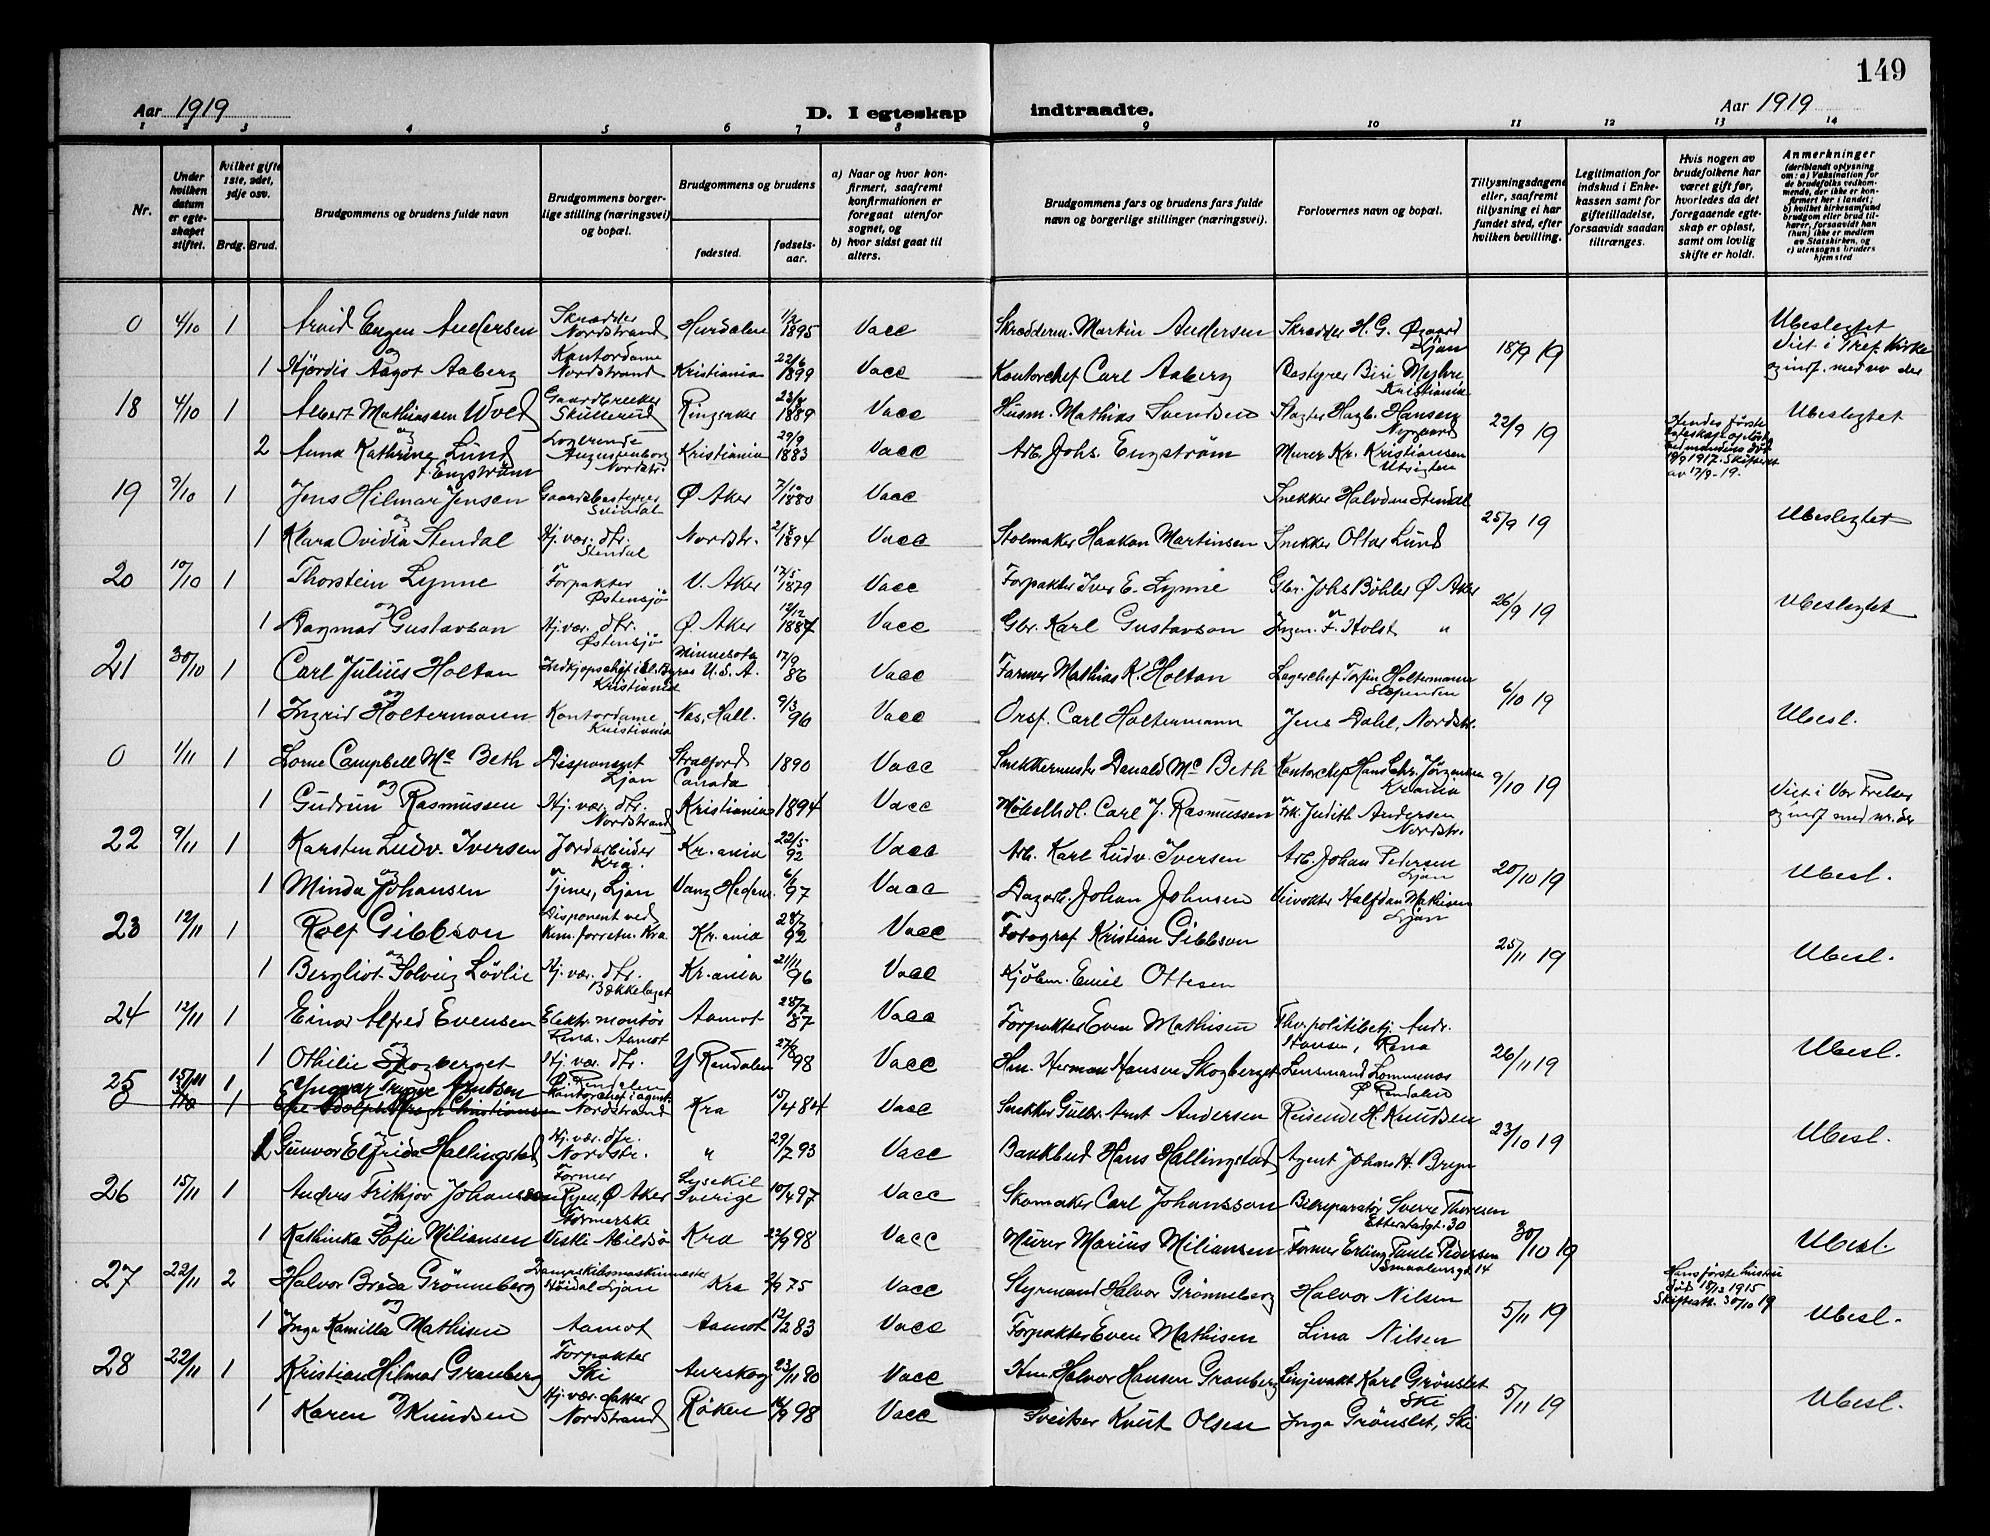 149
Aar 1919
D. I egteskap indtraadte.
Aar 1919
1 2 3 4 5 6 7 8 9 10 11 12 13 14
Nr.
Under hvilken datum er egteskapet stiftet.
Hvilket gifte 1ste, 2det, 3dje osv.
Brdg. Brud.
Brudgommens og brudens fulde navn
Brudgommens borgerlige stilling (næringsvei) og bopæl.
Brudgommens og brudens
fødested.
fødselsaar.
a) Naar og hvor konfirmert, saafremt konfirmationen er foregaat utenfor sognet, og
b) hvor sidst gaat til alters.
Brudgommens fars og brudens fars fulde navn og borgerlige stillinger (næringsvei).
Forlovernes navn og bopæl.
Tillysningsdagene eller, saafremt tillysning ei har fundet sted, efter hvilken bevilling.
Legitimation for indskud i Enkekassen samt for giftetilladelse, forsaavidt saadan tiltrænges.
Hvis nogen av brudefolkene har været gift før, hvorledes da det foregaaende egteskap er opløst, samt om lovlig skifte er holdt.
Anmerkninger
(deriblandt oplysning om: a) Vaksination for de brudefolks vedkommende, der ikke er konfirmert her i landet; b) hvilket kirkesamfund brudgom eller brud tilhører, forsaavidt han (hun) ikke er medlem av Statskirken, og c) utensogns bruders hjemsted
0 4/10 1 Arvid Eugen Andersen Skrædder Nordstrand Hurdalen 1/2 1895 Vacc Skrædderm. Martin Andersen Skrædder H. G. Øgaard Ljan 18/9 19 Ubeslegtet
og
1 Hjørdis Aagot Aaberg Kontordame Nordstrand Kristiania 22/6 1899 Vacc Kontorchef Carl Aaberg Bestyrer Biri Kristiania Viet i Tref. Kirke
18 4/10 1 Albert Mathiassen Wold Gaardbruker Skullerud Ringsaker 1889 Vacc Husm. Mathias Svendsen Slagter Hagb. Hansen 22/9 19 Ubeslegtet
og
2 Anna Kathrine Lund f. Engstrøm Augustenborg Nordstr. Kristiania 29/9 1883 Vacc Arb. Johs. Engström Murer Kr. Kristiansen Utsigten Hendes første egteskap opløst ved mandens død 19/9 1917. Skifteatt av 17/9-19.
19 9/10 1 Jens Hilmar Jensen Gaardsbestyrer Svindal Ø. Aker 7/10 1880 Vacc Snekker Halvdan Stendal 25/9 19 Ubeslegtet
og
1 Klara Ovidia Stendal Hj. vær. dtr. Stendal Nordstr. 2/8 1894 Vacc Stolmaker Haakon Martinsen Snekker Ottar Lund
20 10/10 1 Thorstein Lynne Forpakter Østensjø V. Aker 17/5 1879 Vacc Forpakter Iver E. Lynne Gbr. Johs Bøhler Ø Aker 26/9 19 Ubeslegtet
og
1 Dagmar Gustavson Hj. vær. dtr. Østensjø Ø. Aker 12/12 1887 Vacc Gbr. Karl Gustavson Ingen. F. Holst "
21 30/10 1 Carl Julius Holtan Kristiania Minnesota U.S.A. 17/9 86 Vacc Farmer Mathias K. Holtan Lagerchef Torfin Holtermann Slependen 6/10 19
og
1 Ingrid Holtermann Kontordame, Kristiania Nes, Hall. 9/3 96 Vacc Orsf. Carl Holtermann Jens Dahl, Nordstr. Ubesl.
0 1/11 1 Lorne Campbell Mc Beth Disponent Ljan Stratford Canada 1890 Vacc Snekkermester Donald Mc Beth Kontorchef Hans Chr. Jørgensen Kr.ania 9/10 19
og
1 Gudrun Rasmussen Hj. vær. dtr. Nordstrand Kristiania 1894 Vacc Møbelhdl. Carl J. Rasmussen Frk. Judith Andersen Nordstr. Viet i Vor Frelser
22 9/11 1 Karsten Ludv. Iversen Jordarbeider Kra. Kr.ania 22/5 92 Vacc Arb. Karl Ludv. Iversen Arb. Johan Pedersen Ljan 20/10 19 Ubesl.
og
1 Minda Johansen Tjener, Ljan Vang Hedem. 6/6 97 Vacc Dagarb. Johan Johnsen Veivokter Halfdan Mathisen Ljan
23 12/11 1 Rolf Gibbson Disponent ved Kem. forretn. Kra Kr.ania 28/7 92 Vacc Fotograf Kristian Gibbson 25/11 19 Ubesl.
og
1 Bergliot Solveig Løvlie Hj. vær. dtr. Bækkelaget Kr.ania 21/11 96 Vacc Kjøbm. Emil Ottesen
24 12/11 1 Einar Alfred Evensen Elektr. montør Rena. Aamot Aamot 28/7 87 Vacc Forpakter Even Mathisen Fhv. politibetj. Andr. Stansen, Rena 26/11 19 Ubesl.
og
1 Othilie Skogberget Hj. vær. dtr. Ø. Rendalen Y Rendalen 27/8 98 Vacc Hm. Herman Hansen Skogberget Lensmand Lommenæs Ø Rendalen
25 15/11 1 Yngvar Trygve Arntsen Kontorchef i agent. Nordstrand Kra 15/4 84 Vacc Snekker Gulbr. Arnt Andersen Reisende H. Knudsen 23/10 19 Ubesl.
0 1
og
2 Gunvor Elfrida Hallingstad Hj. vær. dtr. Nordstr. " 29/7 93 Vacc Bankbud Hans Hallingstad Agent Johan H. Bryn
26 15/11 1 Anders Fritjov Johansson Former Ryen, Ø Aker Lysekil Sverige 10/4 97 Vacc Skomaker Carl Johansson Bilreparatør Sverre Thoresen Etterstadgt. 30 30/10 19 Ubesl.
og
1 Kathinka Sofie Miliansen Formerske Vestli Abildsø Kra 23/9 98 Vacc Murer Marius Miliansen Former Erling Paula Pedersen Smaalensgt. 14
27 22/11 2 Halvor Breda Grønneberg Dampskibsmaskinmester Ljan Kra 75 Vacc Styrmand Halvor Grønneberg Halvor Nilsen 5/11 19 Hans første hustru død 18/12 1915 Skifteatt. 30/10 19 Ubesl.
og
1 Inga Kamilla Mathisen Aamot Aamot 12/2 83 Vacc Forpakter Even Mathisen Lina Nilsen
28 22/11 1 Kristian Hilmar Granberg Forpakter Ski Aurskog 23/11 80 Vacc Hm. Halvor Hansen Granberg Linjevakt Karl Grønslet Ski 5/11 19 Ubesl.
og
1 Karen Knudsen Hj. vær. datter Nordstrand Røken 98 Vacc Sveitser Knut Olsen Inga Grønslet, Ski